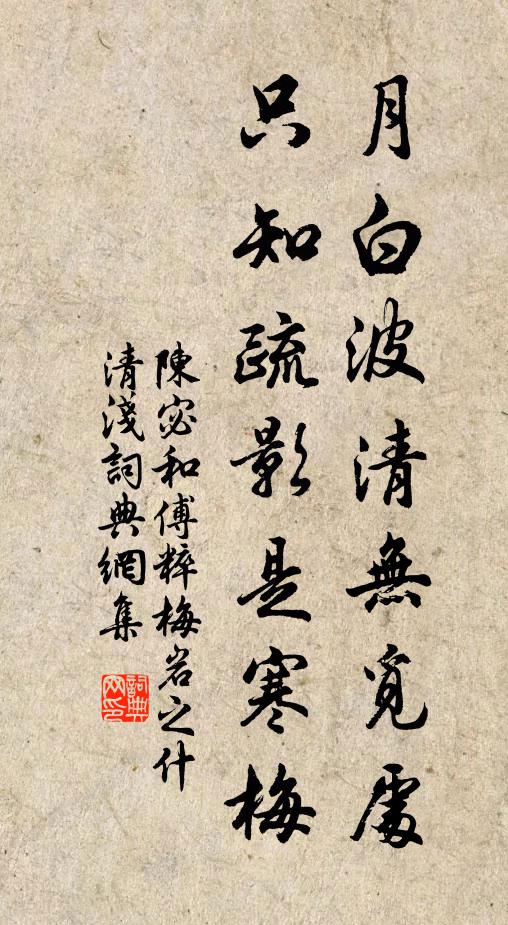 月白波清無覓處
只知疏影是寒梅
陳宓和傅粹梅岩之什
清淺詞典網集
詞典
网印